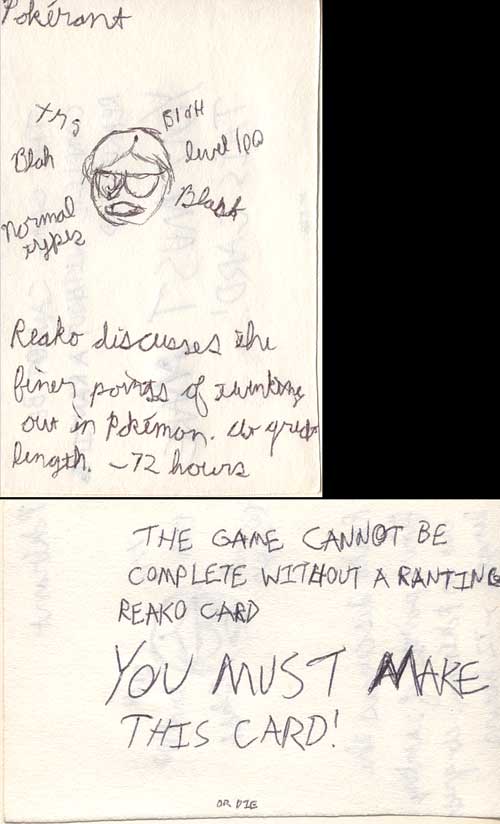 Pokérant
tms
BlaH
Blah
level 100
normal
types
Reako discusses the
finer points of twinking
out in Pokémon. at great
length. ~72 hours
THE GAME CANNOT BE
COMPLETE WITHOUT A RANTING
REAKO CARD
YOU MUST MAKE
THIS CARD!
OR DIE